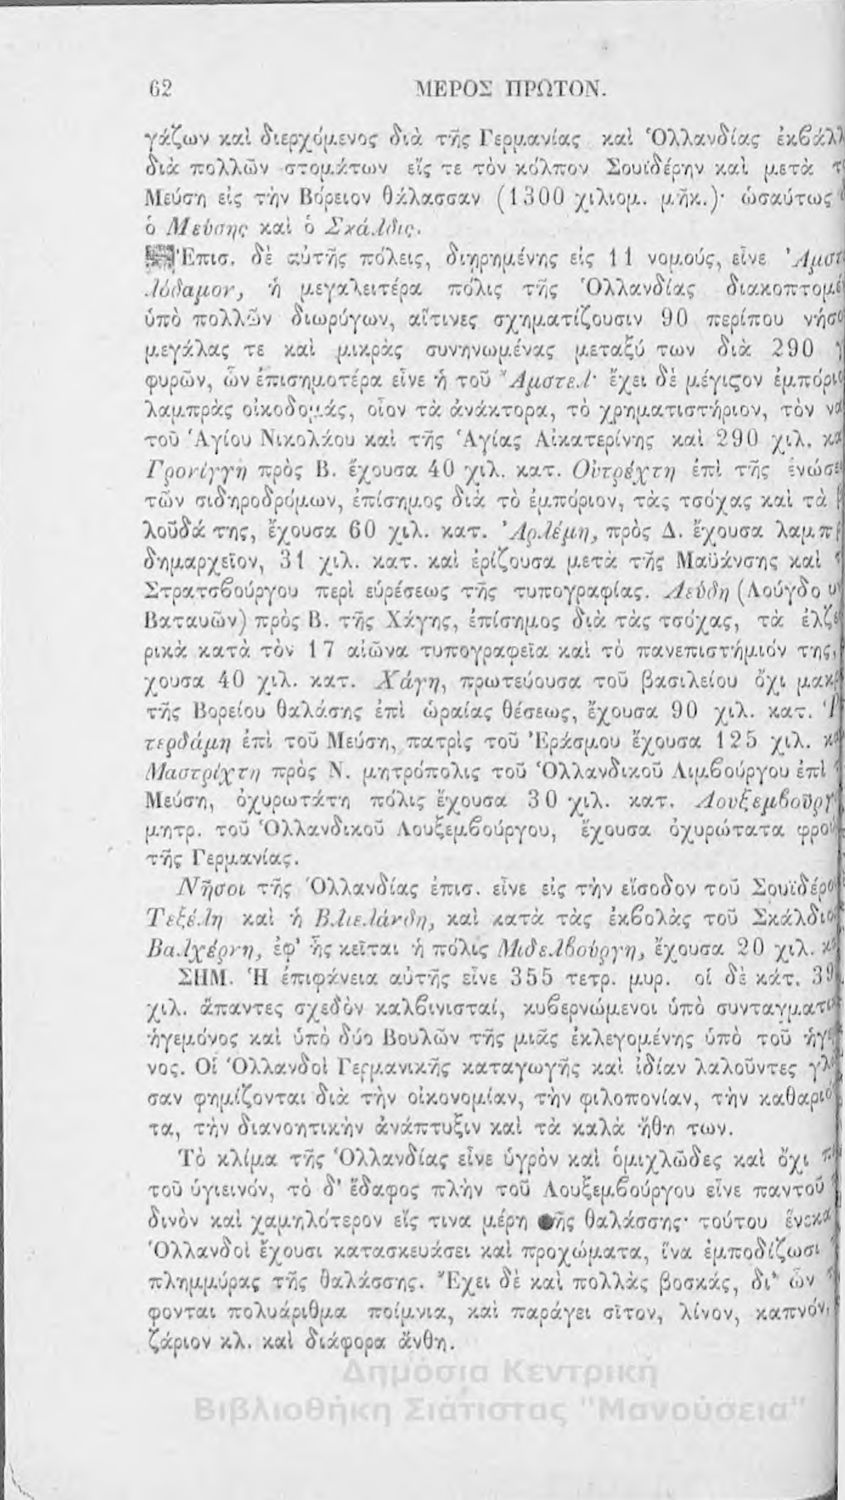 62 ΜΕΡΟΣ ΠΡΩΤΟΝ.
γάζων καὶ διερχόμενος διὰ τῆς Γερμανίας καὶ Ὁλλανδίας
διὰ πολλῶν στομάτων εἴς τε τὸν κόλπον Σουϊδέρην καὶ μετὰ
Μεύση εἰς τὴν Βόρειον θάλασσαν (1300 χιλιομ. μῆκ.)· ὡσαύτως
ὁ Μεύσης καὶ ὁ Σκάλδις.
Ἐπισ. δὲ αὐτῆς πόλεις, διῃρημένης εἰς 11 νομούς, εἶνε
λόδαμον, ἡ μεγαλειτέρα πόλις τῆς Ὁλλανδίας
ὑπὸ πολλῶν διωρύγων, αἵτινες σχηματίζουσιν 90 περίπου
μεγάλας τε καὶ μικρὰς συνηνωμένας μεταξύ των διὰ 290
φυρῶν, ὧν ἐπισημοτέρα εἶνε ἡ τοῦ Ἄμστελ· ἔχει δὲ μέγιστον
λαμπρὰς οἰκοδομάς, οἷον τὰ ἀνάκτορα, τὸ χρηματιστήριον, τὸν
τοῦ Ἁγίου Νικολάου καὶ τῆς Ἁγίας Αἰκατερίνης καὶ 290 χιλ.
Γρονίγγη πρὸς Β. ἔχουσα 40 χιλ. κατ. Οὐτρέχτη ἐπὶ τῆς
τῶν σιδηροδρόμων, ἐπίσημος διὰ τὸ ἐμπόριον, τὰς τσόχας καὶ τὰ
λοῦδά της, ἔχουσα 60 χιλ. κατ. Ἀρλέμη, πρὸς Δ. ἔχουσα
δημαρχεῖον, 31 χιλ. κατ. καὶ ἐρίζουσα μετὰ τῆς Μαϋάνσης καὶ
Στρατσβούργου περὶ εὑρέσεως τῆς τυπογραφίας. Λεύδη (Λούγδου
Βαταυῶν) πρὸς Β. τῆς Χάγης, ἐπίσημος διὰ τὰς τσόχας, τὰ
ρικὰ κατὰ τὸν 17 αἰῶνα τυπογραφεῖα καὶ τὸ πανεπιστήμιόν της,
χουσα 40 χιλ. κατ. Χάγη, πρωτεύουσα τοῦ βασιλείου ὄχι
τῆς Βορείου θαλάσσης ἐπὶ ὡραίας θέσεως, ἔχουσα 90 χιλ. κατ.
τερδάμη ἐπὶ τοῦ Μεύση, πατρὶς τοῦ Ἐράσμου ἔχουσα 125 χιλ.
Μαστρίχτη πρὸς Ν. μητρόπολις τοῦ Ὁλλανδικοῦ Λιμβούργου ἐπὶ
Μεύση, ὀχυρωτάτη πόλις ἔχουσα 30 χιλ. κατ.
μητρ. τοῦ Ὁλλανδικοῦ Λουξεμβούργου, ἔχουσα ὀχυρώτατα
τῆς Γερμανίας.
Νῆσοι τῆς Ὁλλανδίας ἐπισ. εἶνε εἰς τὴν εἴσοδον τοῦ
Τεξέλη καὶ ἡ Βλιελάνδη, καὶ κατὰ τὰς ἐκβολὰς τοῦ
Βαλχέρνη, ἐφ' ἧς κεῖται ἡ πόλις Μιδελβούργη, ἔχουσα 20 χιλ.
ΣΗΜ. Ἡ ἐπιφάνεια αὐτῆς εἶνε 355 τετρ. μυρ. οἱ δὲ κάτ.
χιλ. ἅπαντες σχεδὸν καλβινισταί, κυβερνώμενοι ὑπὸ
ἡγεμόνος καὶ ὑπὸ δύο Βουλῶν τῆς μιᾶς ἐκλεγομένης ὑπὸ τοῦ
νος. Οἱ Ὁλλανδοὶ Γερμανικῆς καταγωγῆς καὶ ἰδίαν λαλοῦντες
σαν φημίζονται διὰ τὴν οἰκονομίαν, τὴν φιλοπονίαν, τὴν
τα, τὴν διανοητικὴν ἀνάπτυξιν καὶ τὰ καλὰ ἤθη των.
Τὸ κλίμα τῆς Ὁλλανδίας εἶνε ὑγρὸν καὶ ὁμιχλῶδες καὶ ὄχι
τοῦ ὑγιεινόν, τὸ δ' ἔδαφος πλὴν τοῦ Λουξεμβούργου εἶνε παντοῦ
δινὸν καὶ χαμηλότερον εἴς τινα μέρη τῆς θαλάσσης· τούτου ἕνεκα
Ὁλλανδοὶ ἔχουσι κατασκευάσει καὶ προχώματα, ἵνα ἐμποδίζωσι
πλημμύρας τῆς θαλάσσης. Ἔχει δὲ καὶ πολλὰς βοσκάς, δι' ὧν
φονται πολυάριθμα ποίμνια, καὶ παράγει σῖτον, λίνον, καπνόν,
ζάριον κλ. καὶ διάφορα ἄνθη.
Δημόσια Κεντρική
Βιβλιοθήκη Σιάτιστας "Μανούσεια"